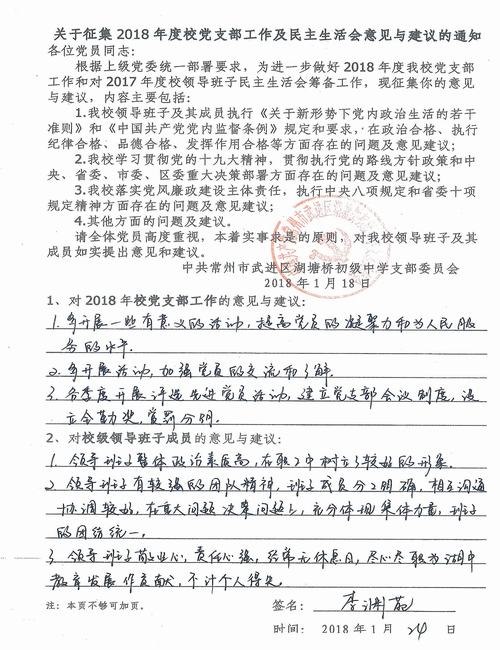 关于征集 2018 年度校党支部工作及民主生活会意见与建议的通知
各位党员同志：
根据上级党委统一部署要求，为进一步做好 2018 年度我校党支部
工作和对 2017 年度校领导班子民主生活会筹备工作，现征集你的意见
与建议，内容主要包括：
1.我校领导班子及其成员执行《关于新形势下党内政治生活的若干
准则》和《中国共产党党内监督条例》规定和要求，在政治合格、执行
纪律合格、品德合格、发挥作用合格等方面存在的问题及意见建议；
2.我校学习贯彻党的十九大精神，贯彻执行党的路线方针政策和中
央、省委、市委、区委重大决策部署方面存在的问题及意见建议；
3.我校落实党风廉政建设主体责任，执行中央八项规定和省委十项
规定精神方面存在的问题及意见建议；
4.其他方面的问题及建议。
请全体党员高度重视，本着实事求是的原则，对我校领导班子及其
成员如实提出意见和建议。
中共常州市武进区湖塘桥初级中学支部委员会
2018 年 1 月 18 日
1、对 2018 年校党支部工作的意见与建议：
1. 多开展一些有意义的活动，提高党员的凝聚力和为人民服
务的水平.
2. 多开展活动，加强党员的交流和了解.
3. 各季度开展评选先进党员活动，建立党支部会议制度，设
立全勤奖，赏罚分明.
2、对校级领导班子成员的意见与建议：
1. 领导班子整体政治素质高，在职工中树立了较好的形象.
2. 领导班子有较强的团队精神，班子成员分工明确，相互沟通
协调较好，在重大问题决策问题上，充分体现集体力量，班子
的团结统一.
3. 领导班子敬业心，责任心强，经常无休息日，尽心尽职为湖中
教育发展作贡献，不计个人得失.
注：本页不够可加页。
签名：李
时间： 2018 年 1 月 24 日